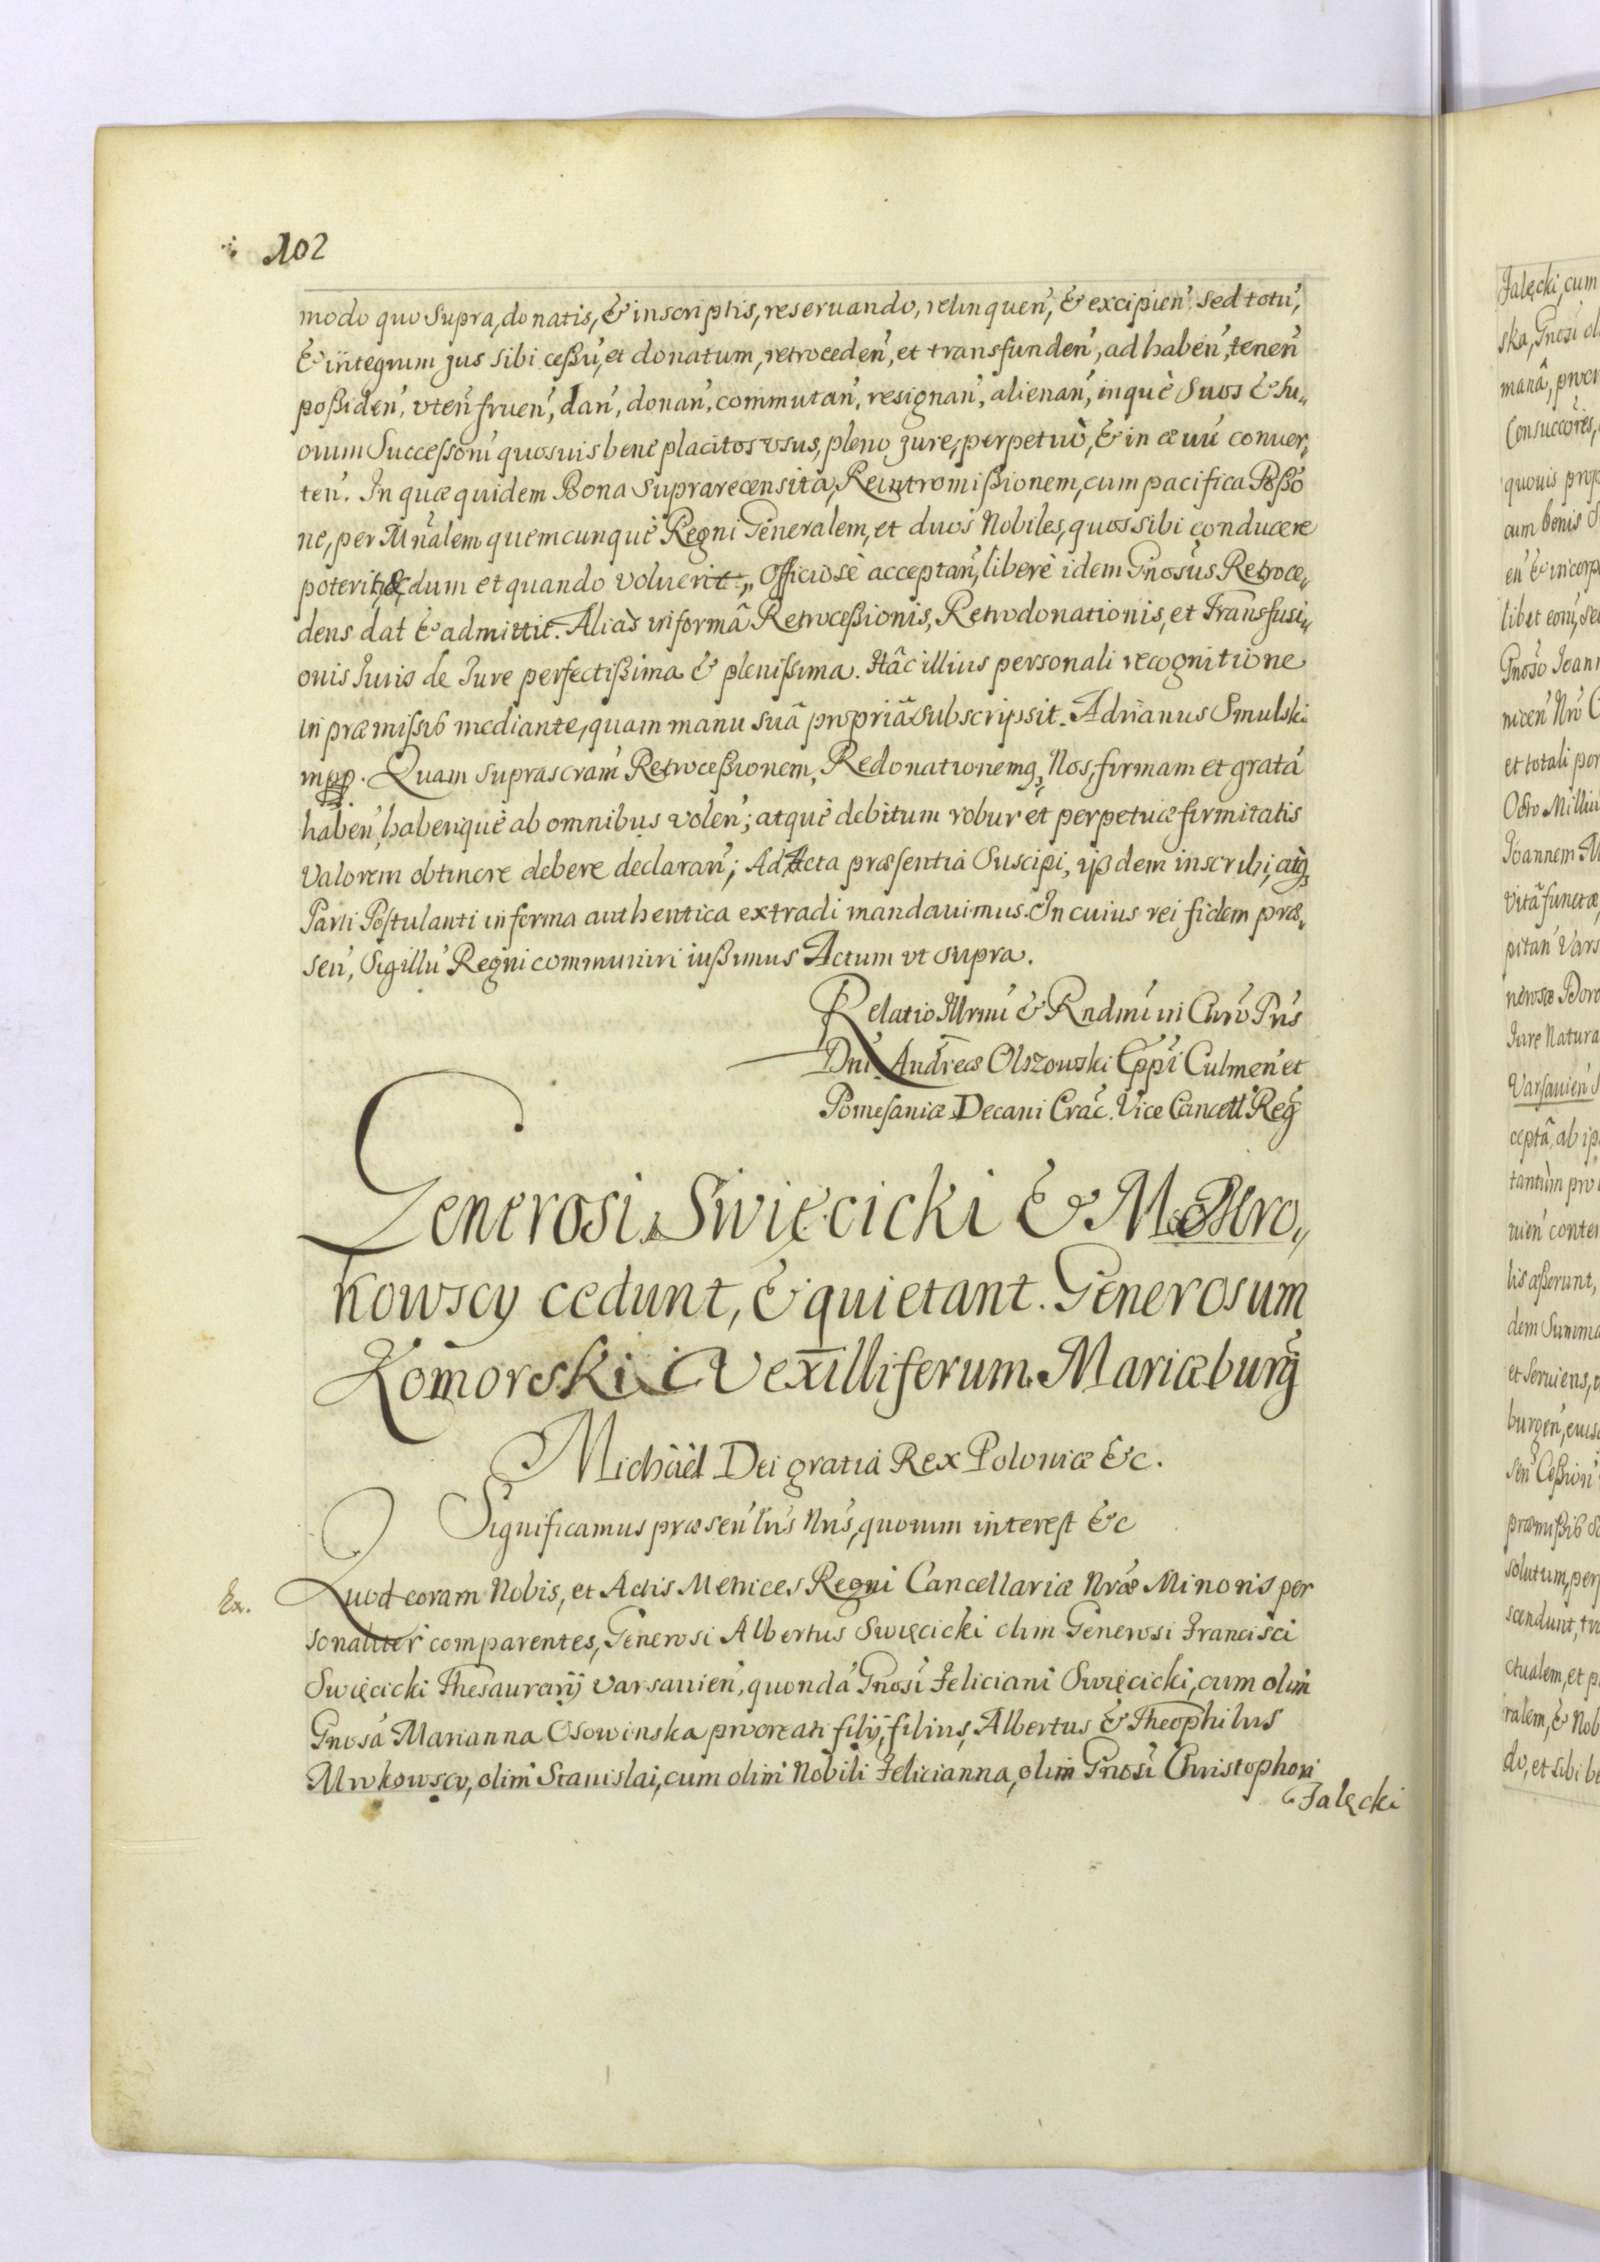 102
modo quo supra, donatis, & inscriptis, reseruando, relinquen̄, & excipien̄. Sed totū,
& integrum jus sibi ceßū, et donatum, retroceden̄, et transfunden̄, ad haben̄, tenen̄
poßiden̄, vten̄ fruen̄, dan̄, donan̄, commutan̄, resignan̄, alienan̄, inquè Suos & Su„
orum Successorū quosuis bene placitos vsus, pleno jure, perpetuò, & in æuū conuer„
ten̄. In quæ quidem Bona Suprarecensita, Reintromißionem, cum pacifica Poßßo
ne, per Mn̄alem quemcunquè Regni Generalem, et duos Nobiles, quos sibi conducere
poterit, & dum et quando voluerit„ Officiosè acceptan̄, liberè idem Gnosus Retroce„
dens dat & admittit. Aliàs in formâ Retroceßionis, Retrodonationis, et Transfusi„
onis Iuris de Iure perfectißima & plenißima. Hâc illius personali recognitione
in præmissis mediante, quam manu suâ propriâ subscripsit. Adrianus Smulski
mpp. Quam suprascram̄ Retroceßionem, Redonationemq̨, Nos, firmam et gratā
haben̄, haberiquè ab omnibus volen̄; atquè debitum robur et perpetuæ firmitatis
Valorem obtinere debere declaran̄; Ad Acta præsentia Suscipi, ijsdem inscribi, atq̨
Parti Postulanti in forma authentica extradi mandauimus. In cuius rei fidem præ„
sen̄, Sigillū Regni communiri iußimus Actum vt supra.
Relatio Illrmi & Rndmi in Chro Pris
Dni Andreæ Olszowski Eppi Culmen̄ et
Pomesaniæ Decani Crac̄. Vice Cancell̄ Reḡ
Generosi Swięcicki & Mro„
kowscy cedunt, & quietant. Generosum
Komorski Vexilliferum Mariæburḡ
Michäel Dei gratia Rex Poloniæ &c.
Significamus præsen̄ lris Nris, quorum interest &c
Ex.
Quod coram Nobis, et Actis Metrices Regni Cancellariæ Nræ Minoris per
sonaliter comparentes, Generosi Albertus Swięcicki olim Generosi Francisci
Swięcicki Thesaurarij Varsauien̄, quondā Gnosi Feliciani Swięcicki, cum olim
Gnosā Marianna Osowinska procreati filij, filius, Albertus & Theophilus
Mrokowscy, olim Stanislai, cum olim Nobili Felicianna, olim Gnosi Christophori
Jalęcki